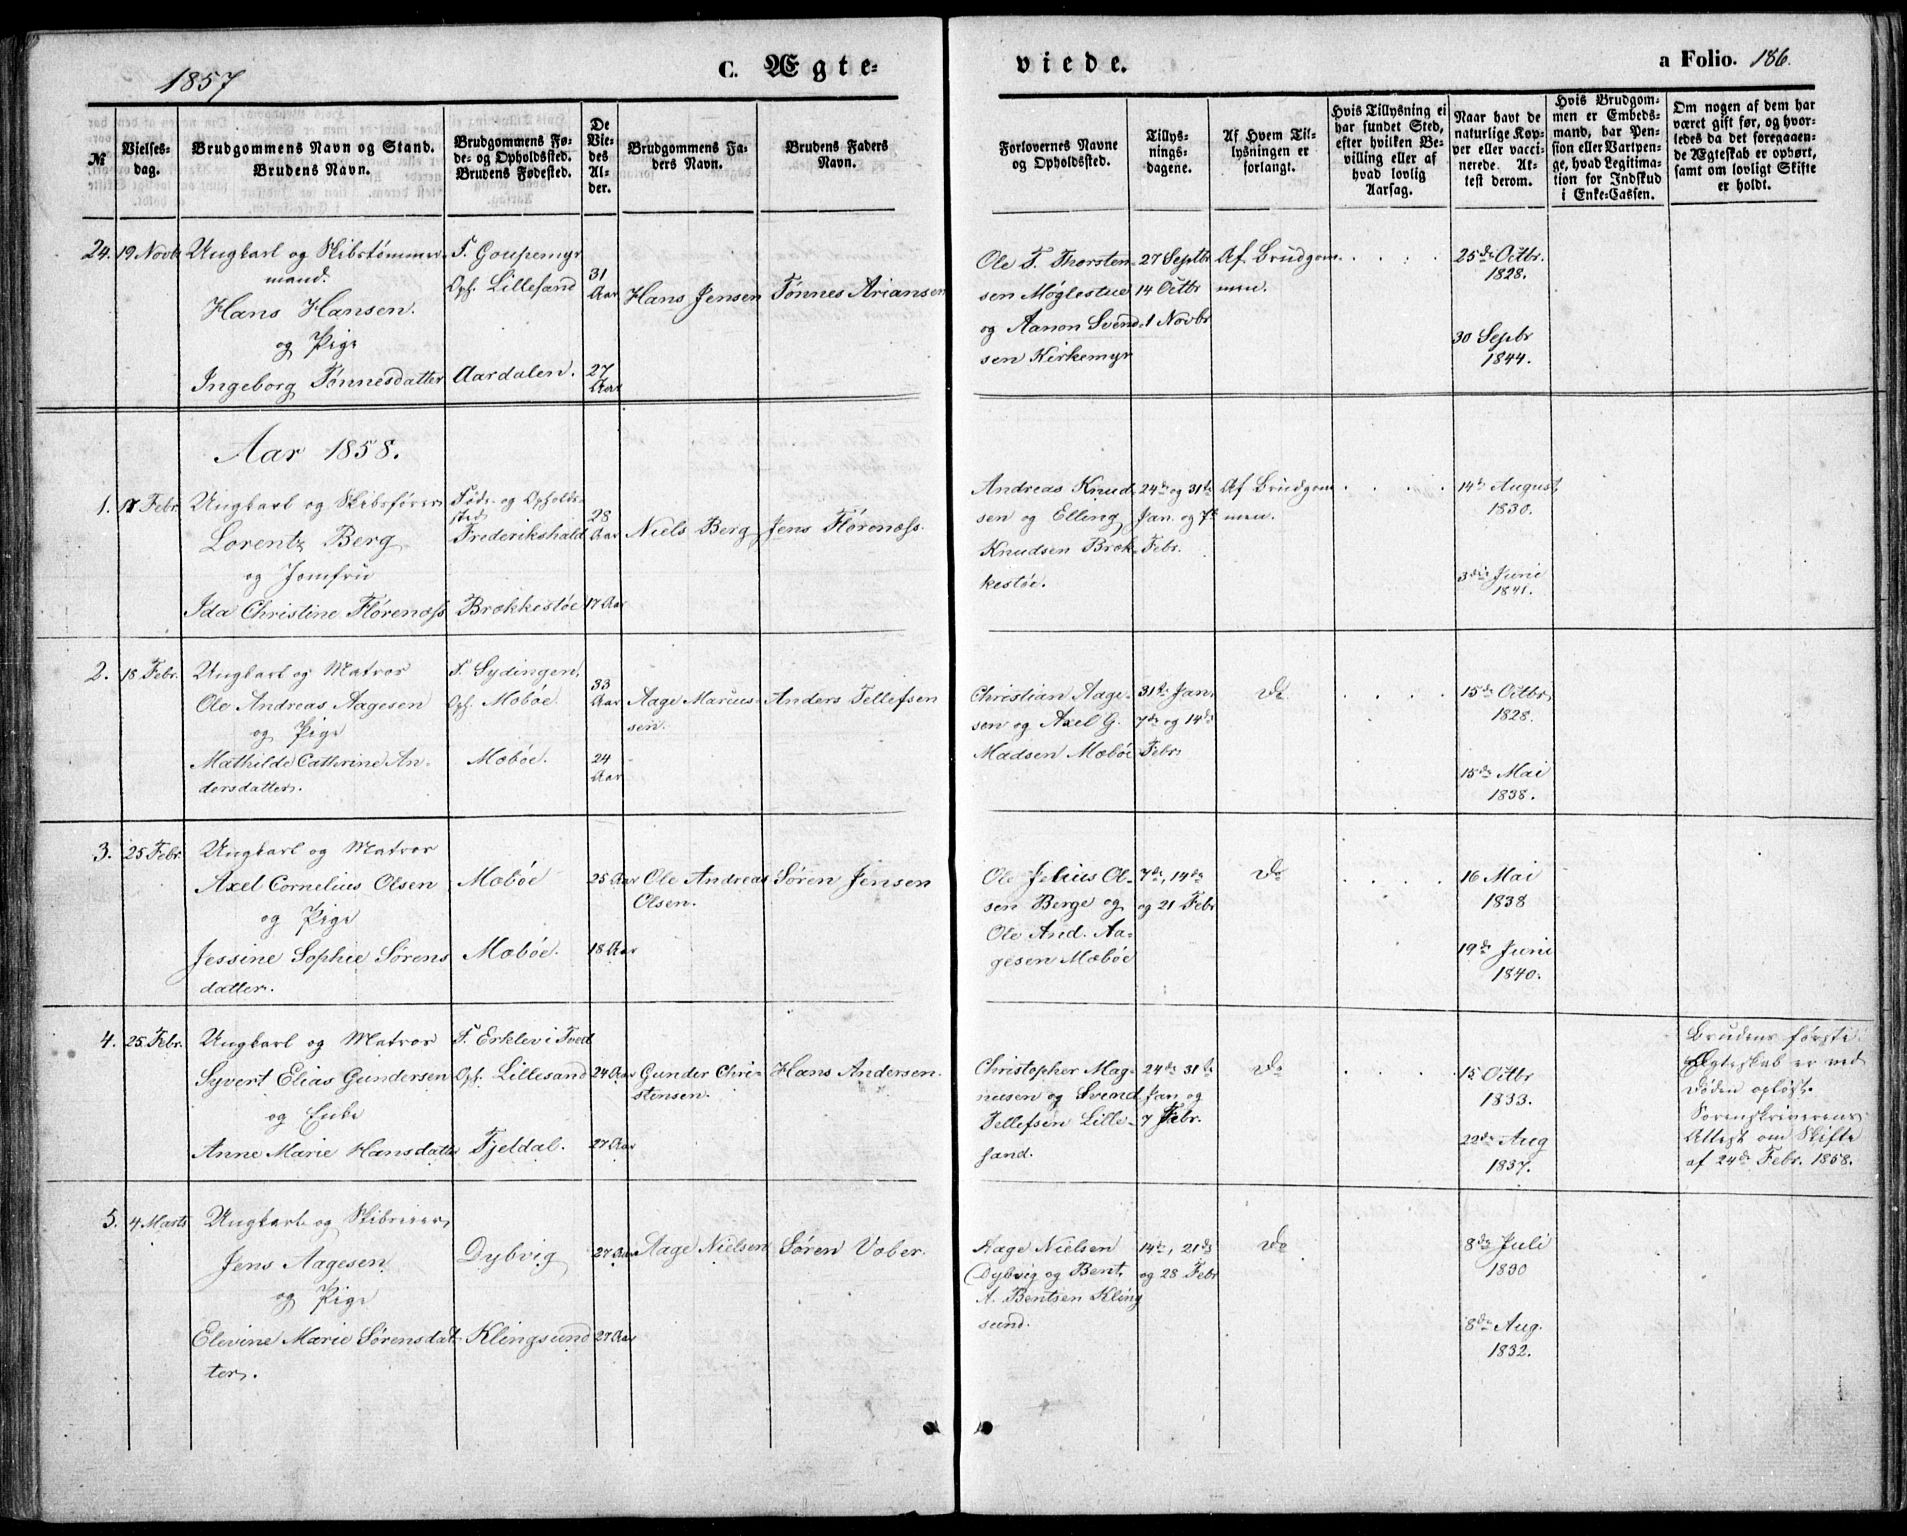 1857
C. Ægte-
№
Vielses-
dag.
Brudgommens Navn og Stand.
Brudens Navn.
Brudgommens Fø-
de- og Opholdssted.
Brudens Fødested.
De
Vie-
des
Al-
der.
Brudgommens Fa-
ders Navn.
Brudens Faders
Navn.
24. 19 Novb. Ungkarl og Skibstømmer-
mand.
Hans Hansen.
og Pige
Ingeborg Tønnesdatter
F. Goupemyr
Oph. Lillesand
Aardalen.
31
Aar
27
Aar
Hans Jensen
Tønnes Ariansen
Aar 1858.
1. 18 Febr. Ungkarl og Skibsfører
Lorentz Berg
og Jomfru
Ida Christine Flørenæss
Føde- og Opholds-
sted
Frederikshald
Brækkestøe
28
Aar
17 Aar
Niels Berg
Jens Flørenæss.
2. 18 Febr. Ungkarl og Matros
Ole Andreas Aagesen
og Pige
Mathilde Cathrine An-
dersdatter.
F. Sydingen,
Oph. Mæbøe.
Mæbøe.
33
Aar
24
Aar
Aage Marcus-
sen.
Anders Tellefsen
3. 25 Febr. Ungkarl og Matros
Axel Cornelius Olsen
og Pige
Jessine Sophie Sørens
datter.
Mæbøe
Mæbøe.
25 Aar
18 Aar
Ole Andreas
Olsen.
Søren Jensen
4. 25 Febr. Ungkarl og Matros
Syvert Elias Gundersen
og Enke
Anne Marie Hansdatter
F. Erklev i Tved
Oph. Lillesand
Fjeldal.
24 Aar
27 Aar
Gunder Chri-
stensen.
Hans Andersen.
5. 4 Marts Ungkarl og Skibseier,
Jens Aagesen
og Pige
Elevine Marie Sørensdat-
ter.
Dybvig
Klingsund
27 Aar
27 Aar
Aage Nielsen
Søren Vober.
viede.
a Folio. 186.
Forlovernes Navne
og Opholdssted.
Tillys-
nings-
dagene.
Af Hvem Til-
lysningen er
forlangt.
Hvis Tillysning ei
har fundet Sted,
efter hvilken Be-
villing eller af
hvad lovlig
Aarsag.
Naar havt de
naturlige Kop-
per eller vacci-
nerede. At-
test derom.
Hvis Brudgom-
men er Embeds-
mand, har Pen-
sion eller Vartpen-
ge, hvad Legitima-
tion for Indskud
i Enke-Cassen.
Om nogen af dem har
været gift før, og hvor-
ledes da det foregaaen-
de Ægteskab er ophørt,
samt om lovligt Skifte
er holdt.
Ole T. Thorsten-
sen Møglestue
og Aanon Svend-
sen Kirkemyr
27 Septbr
14 Octbr
1 Novbr
Af Brudgom-
men.
25de Octbr.
1828.
30 Sepbr
1844.
Andreas Knud-
sen og Elling
Knudsen Bræk-
kestøe.
24de og 31te
Jan. og 7de
Febr.
Af Brudgom-
men.
14de August
1830.
3die Juni
1841.
Christian Aage-
sen og Axel G.
Madsen Mæbøe
31te Jan,
7de og 14de
Febr
Do
15de Octbr,
1828.
15de Mai
1838.
Ole Julius Ol-
sen Berge og
Ole And. Aa-
gesen Mæbøe
7de, 14de
og 21 Febr
Do
16 Mai
1838
19de Juni
1840.
Christopher Mag-
nusen og Svend
Tellefsen Lille-
sand.
24de 31te
Jan og
7 Febr.
Do
15 Octbr
1833.
22de Aug
1837.
Brudens første
Ægteskab er ved
Døden opløst.
Sorenskriverens
Attest om Skifte
af 24de Febr. 1858.
Aage Nielsen
Dybvig og Bent
A. Bentsen Kling
sund.
14de, 21de
og 28 Febr
Do
8de Juli
1830
8de Aug.
1832.